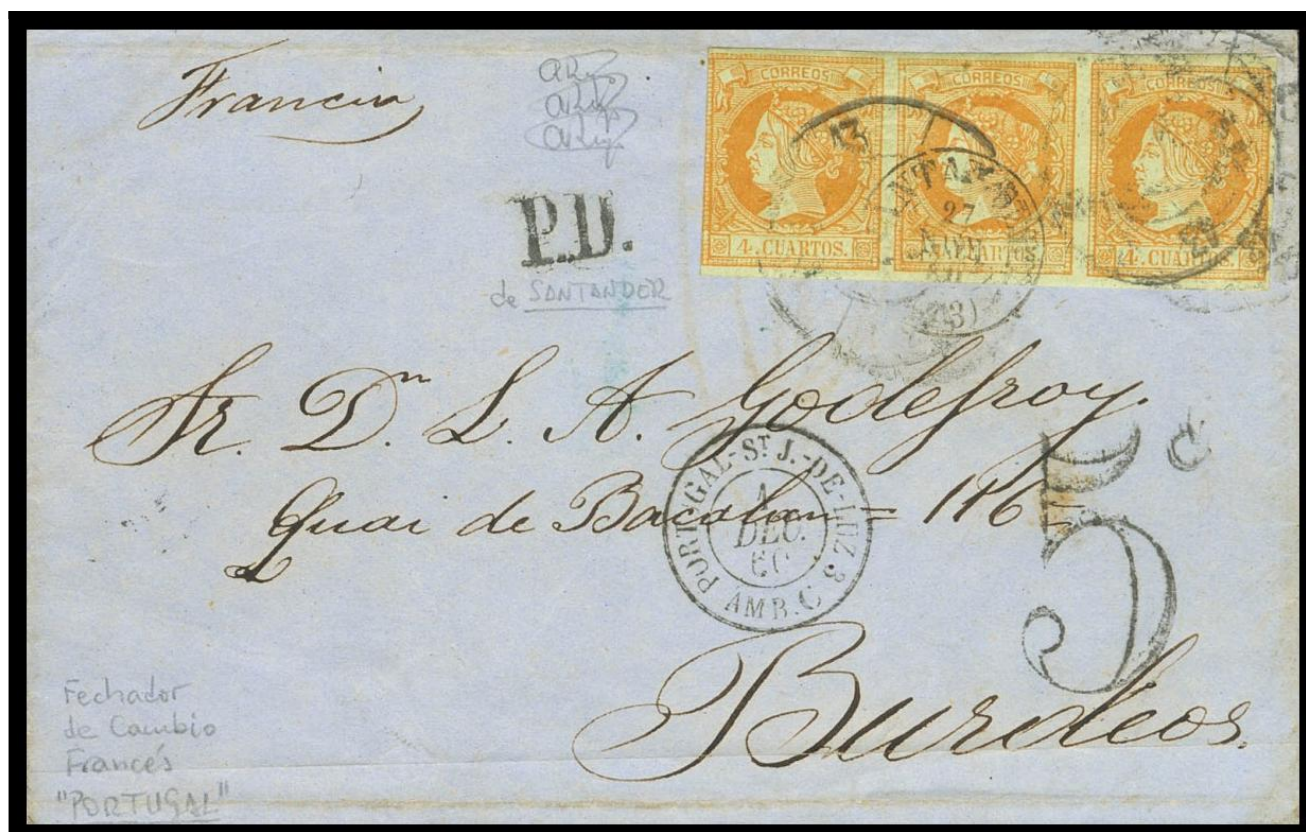 Francia
P.D.
de SANTANDER
CORREOS
4. CUARTOS.
CORREOS
CUARTOS.
CORREOS
4. CUARTOS.
13
NTAN
27
(13)
Sr. Dn. L. A. Godefroy.
Quai de Bacalan = 116
Burdeos.
PORTUGAL-ST J.-DE-LUZ 3
1
DEC.
60
AMB. C
5 c
Fechador
de Cambio
Francés
"PORTUGAL"